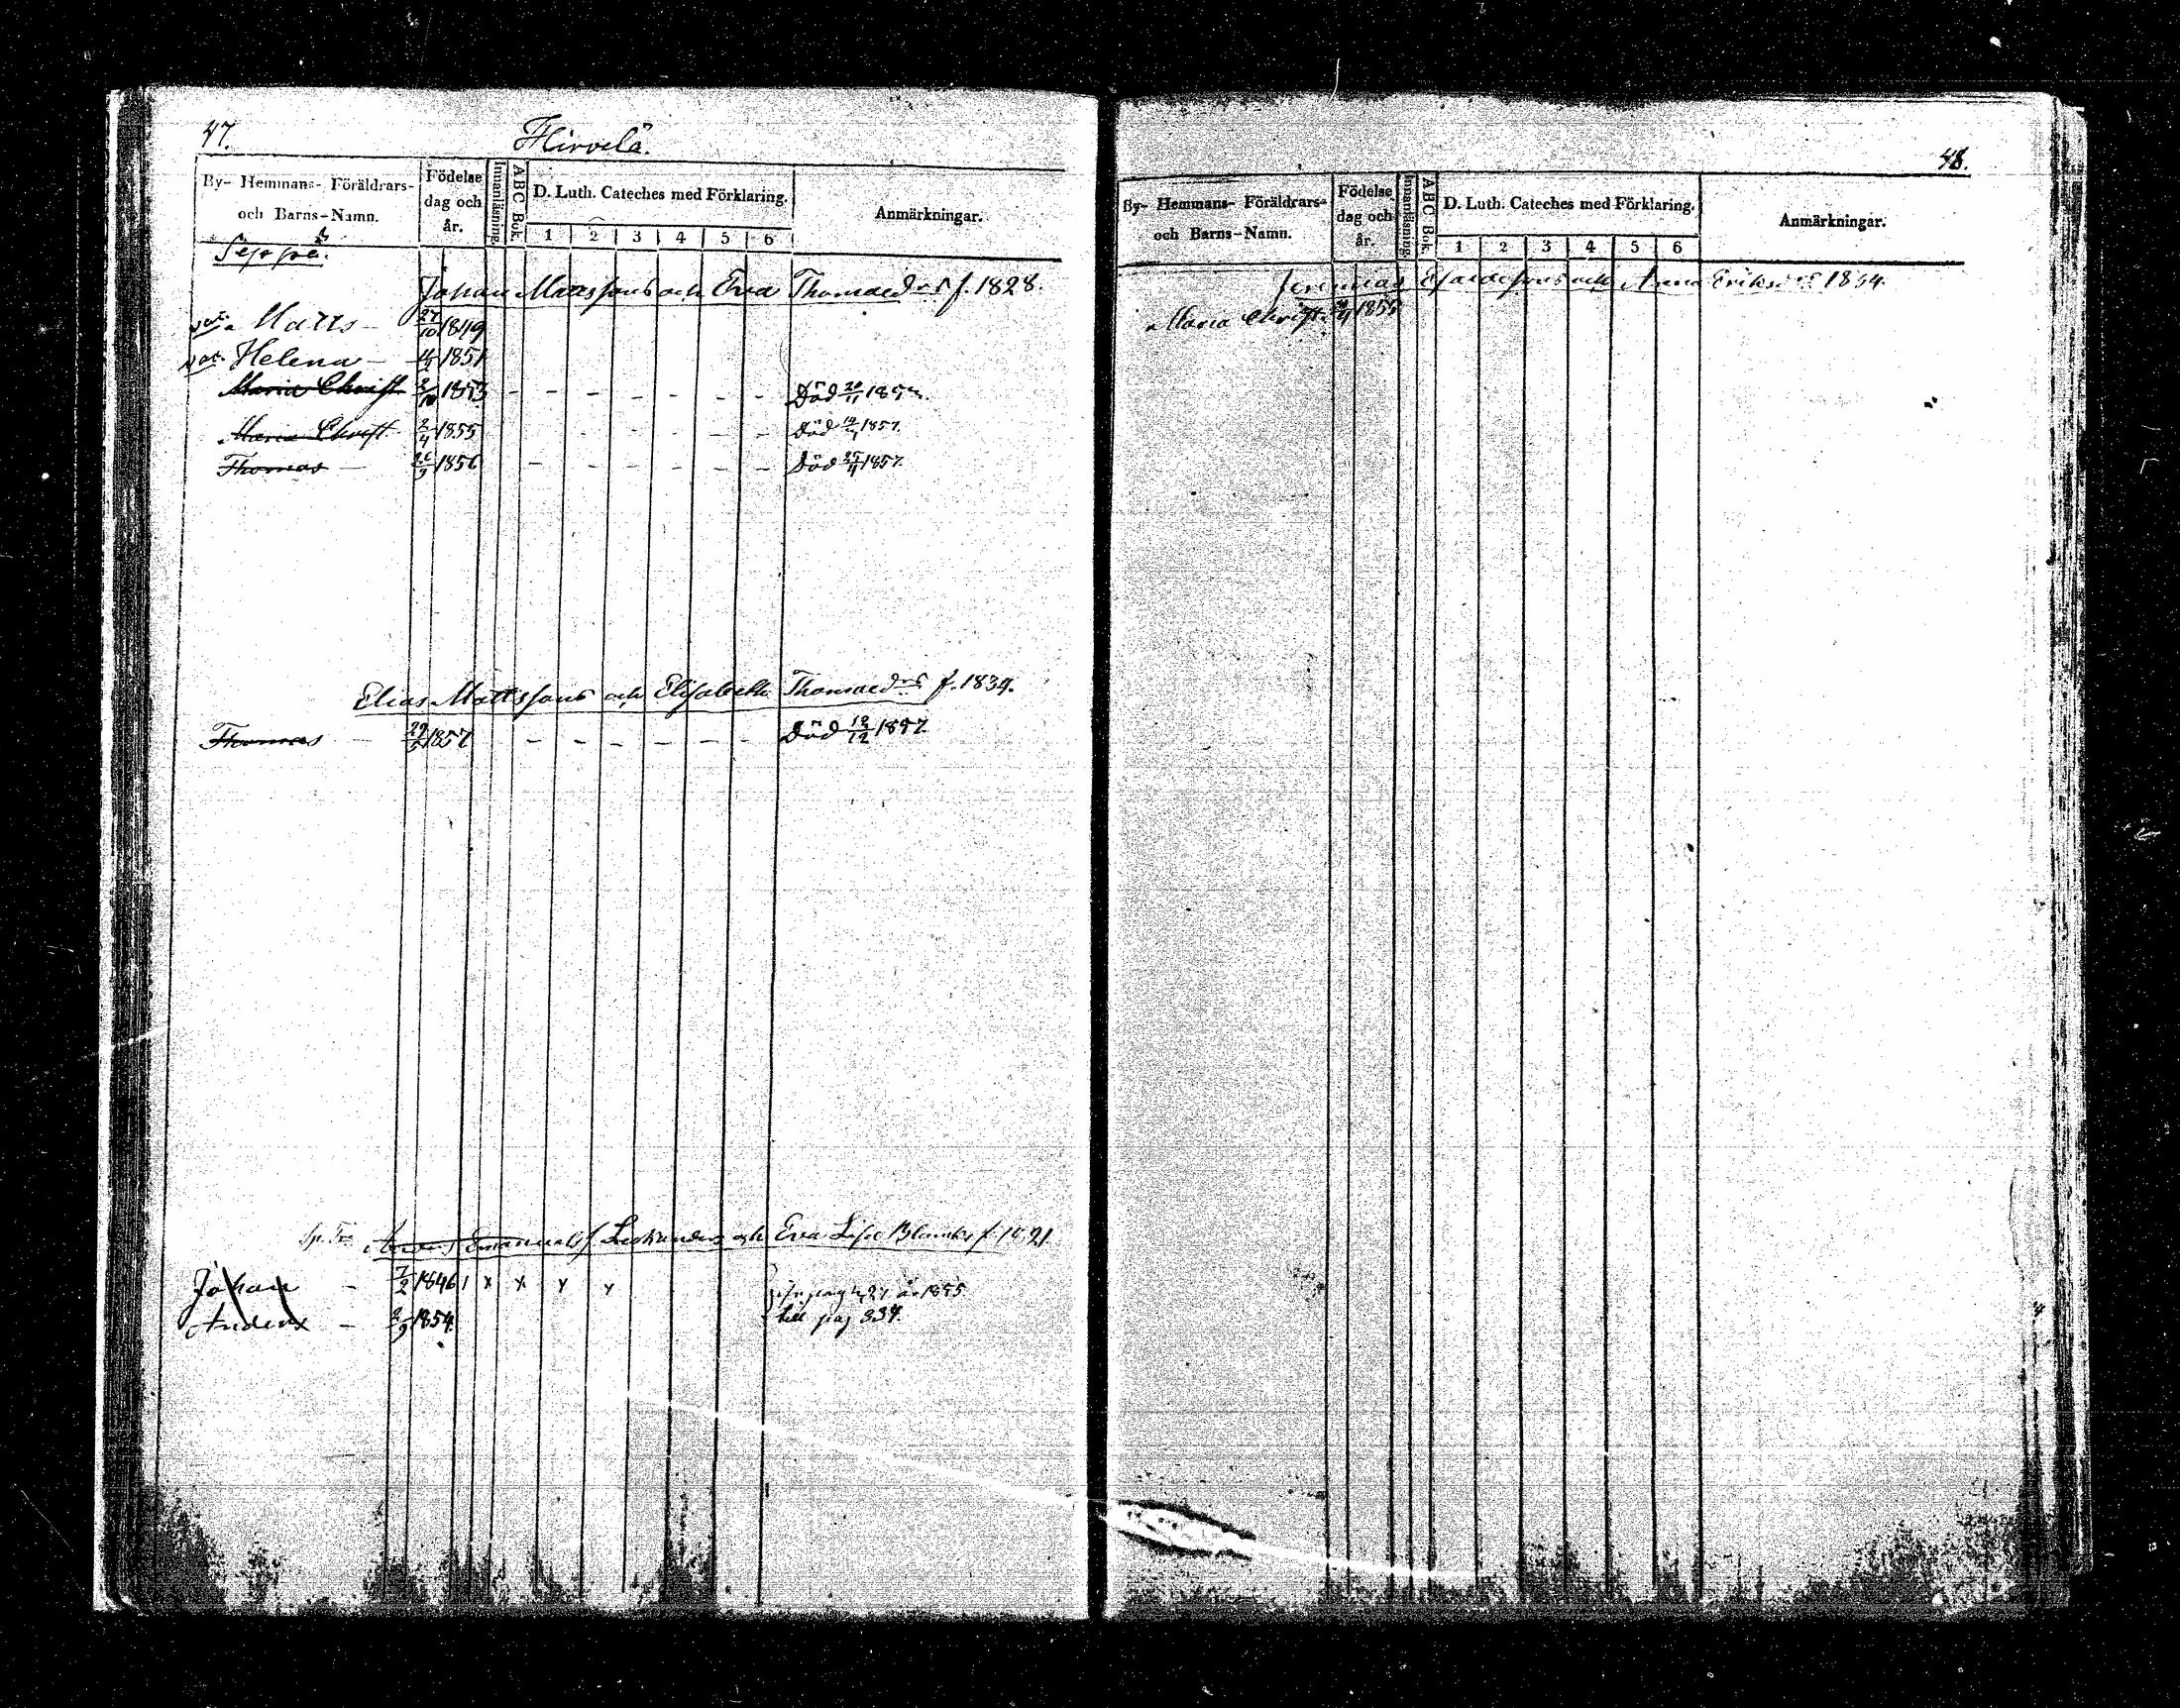 47.
Hirvelä.
By- Hemmans- Föräldrars- och Barns-Namn.
Födelse dag och år.
Innanläsning.
ABC Bok.
D. Luth. Cateches med Förklaring.
1 2 3 4 5 6
Anmärkningar.
Seppä.
Johan Mattssons och Eva Thomaed:rs f. 1828.
vac. Matts – 27/10 1849
vac. Helena – 1851
Maria Christ 2/10 1853 – – – – – – – Död 20/11 1853.
Maria Christ. 2/4 1855 – – Död 1857.
Thomas – 1856 – – – – – – Död 25/4 1857.
Elias Mattssons och Elisabeth Thomaed:rs f. 1834.
Thomas – 29/5 1857 – – – – – – Död 12/12 1857.
Anders Emanuelss och Eva Lisa f.
Johan – 7/2 1846 1 x x x x pag
Anders – 1854. till pag 337.
48.
By- Hemmans- Föräldrars- och Barns-Namn.
Födelse dag och år.
Innanläsning.
ABC Bok.
D. Luth. Cateches med Förklaring.
1 2 3 4 5 6
Anmärkningar.
Jeremias Esaiæssons och Anna Eriksd:rs 1834.
Maria Christ. 1855